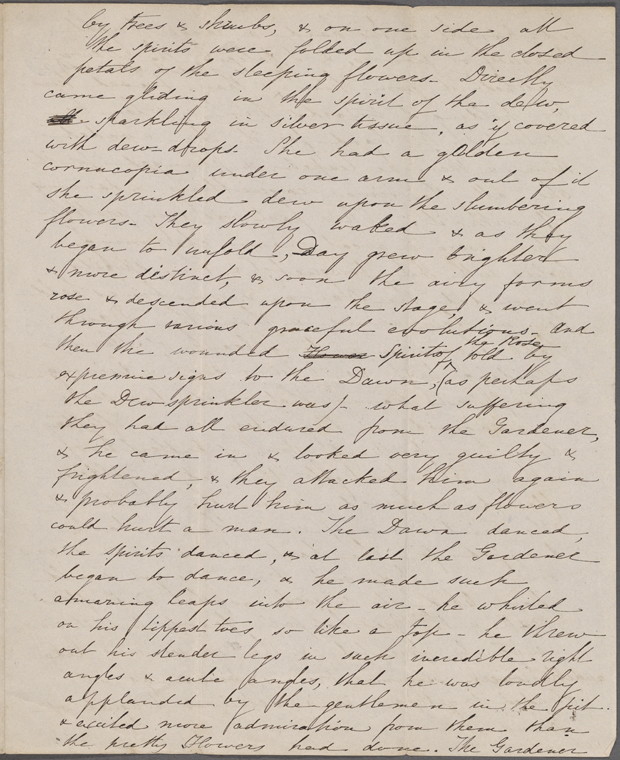 by trees & shrubs, & on one side all
the spirits were folded up in the closed
petals of the sleeping flowers. Directly
came gliding in the spirit of the dew,
sparkling in silver tissue, as if covered
with dew-drops. She had a golden
cornucopia under one arm & out of it
she sprinkled dew upon the slumbering
flowers. They slowly waked & as they
began to unfold, Day grew brighter
& more distinct, & soon the airy forms
rose & descended upon the stage, & went
through various graceful evolutions. And
then the wounded Spirit of the Rose told by
expressive signs to the Dawn, (as perhaps
the Dew sprinkler was) - what suffering
they had all endured from the Gardener,
& he came in & looked very guilty &
frightened, & they attacked him again
& probably hurt him as much as flowers
could hurt a man. The Dawn danced,
the spirits danced, & at last the Gardener
began to dance, & he made such
amazing leaps into the air - he whirled
on his tippest toes so like a top - he threw
out his slender legs in such incredible right
angles & acute angles, that he was loudly
applauded by the gentlemen in the pit.
& excited more admiration from them than
the pretty Flowers had done. The Gardener